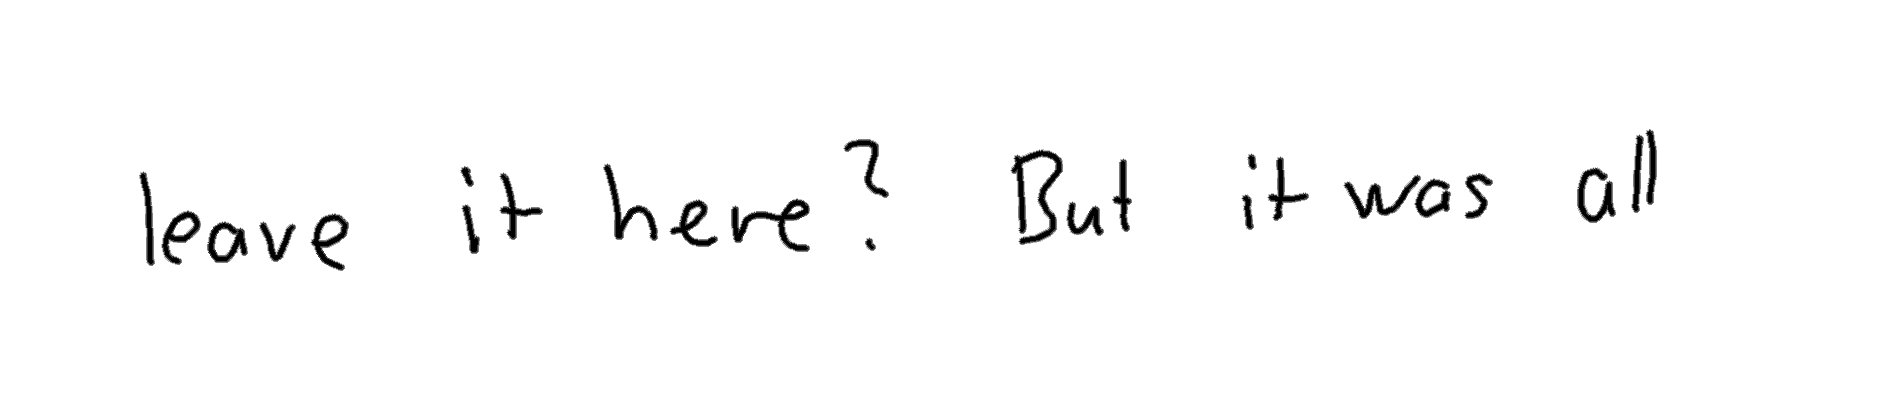 leave it here? But it was all